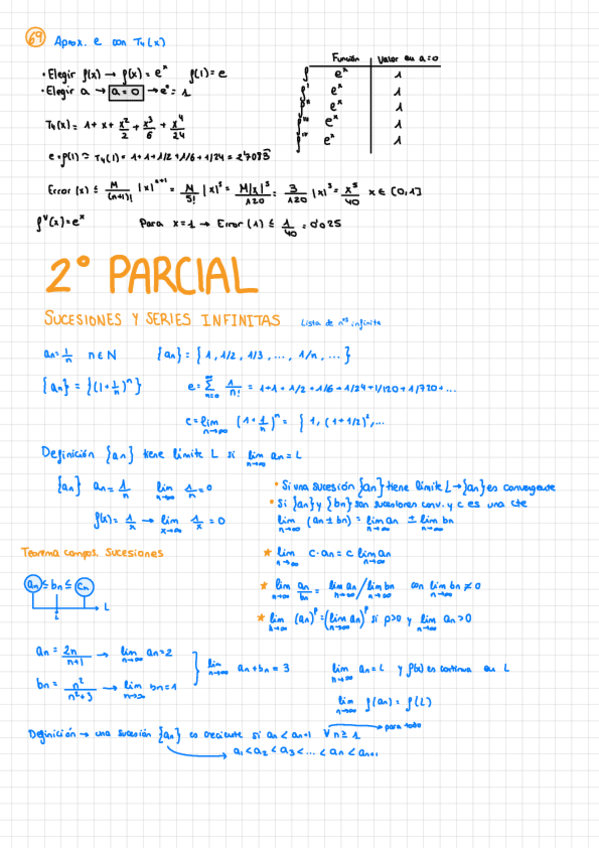 69 Aprox. e con T₄(x)
Función Valor en a=0
• Elegir f(x) → f(x) = eˣ f(1) = e
f eˣ 1
• Elegir a → a = 0 → e⁰ = 1
f' eˣ 1
f'' eˣ 1
f''' eˣ 1
fᴵⱽ eˣ 1
T₄(x) = 1 + x + x²/2 + x³/6 + x⁴/24
e = f(1) ≈ T₄(1) = 1+1+1/2+1/6+1/24 = 2'7083
Error (x) ≤ M/(n+1)! |x|ⁿ⁺¹ = M/5! |x|⁵ = M|x|⁵/120 = 3/120 |x|⁵ = x⁵/40 x ∈ [0,1]
fⱽ(x) = eˣ Para x=1 → Error (1) ≤ 1/40 = 0'025
2° PARCIAL
SUCESIONES Y SERIES INFINITAS Lista de nºˢ infinita
an = 1/n n ∈ N {an} = {1, 1/2, 1/3, ..., 1/n, ...}
{an} = {(1+1/n)ⁿ} e = ∑ n=0 ∞ 1/n! = 1+1+1/2+1/6+1/24+1/120+1/720+...
e = lim n→∞ (1+1/n)ⁿ = {1, (1+1/2)², ...
Definición {an} tiene límite L si lim n→∞ an = L
{an} an = 1/n lim n→∞ 1/n = 0
f(x) = 1/x → lim x→∞ 1/x = 0
• Si una sucesión {an} tiene límite L → {an} es convergente
• Si {an} y {bn} son sucesiones conv. y c es una cte
lim n→∞ (an ± bn) = lim n→∞ an ± lim n→∞ bn
Teorema compos. Sucesiones
* lim n→∞ c·an = c lim n→∞ an
an ≤ bn ≤ cn
L
L
* lim n→∞ an/bn = lim n→∞ an / lim n→∞ bn con lim n→∞ bn ≠ 0
* lim n→∞ (an)ᵖ = (lim n→∞ an)ᵖ si p>0 y lim n→∞ an > 0
an = 2n/n+1 → lim n→∞ an = 2
bn = n²/n²+3 → lim n→∞ bn = 1
lim n→∞ an + bn = 3
lim n→∞ an = L y f(x) es continua en L
lim n→∞ f(an) = f(L)
Definición → una sucesión {an} es creciente si an < an+1 ∀ n ≥ 1 → para todo
a₁ < a₂ < a₃ < ... < an < an+1